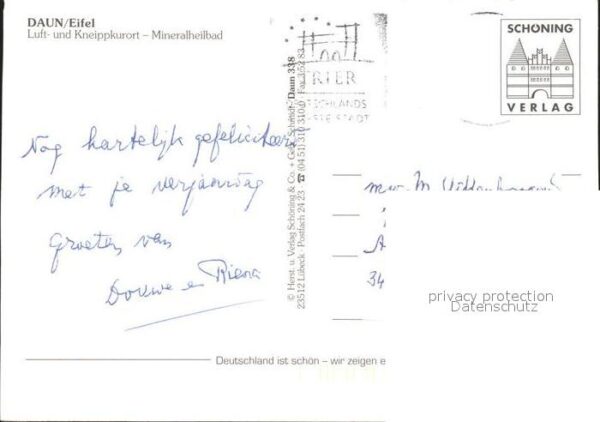 DAUN/Eifel
Luft- und Kneippkurort – Mineralheilbad
Nog hartelijk gefeliciteerd
met je verjaardag
Groeten van
Douwe en Riena
© Herst. u. Verlag Schöning & Co. + Gebr. Schmidt
23512 Lübeck · Postfach 24 23 ☎ (04 51) 310 310 · Fax 352 83
Daun 338
TRIER
STADT
SCHÖNING
VERLAG
mw. M
A
34
privacy protection
Datenschutz
Deutschland ist schön – wir zeigen e